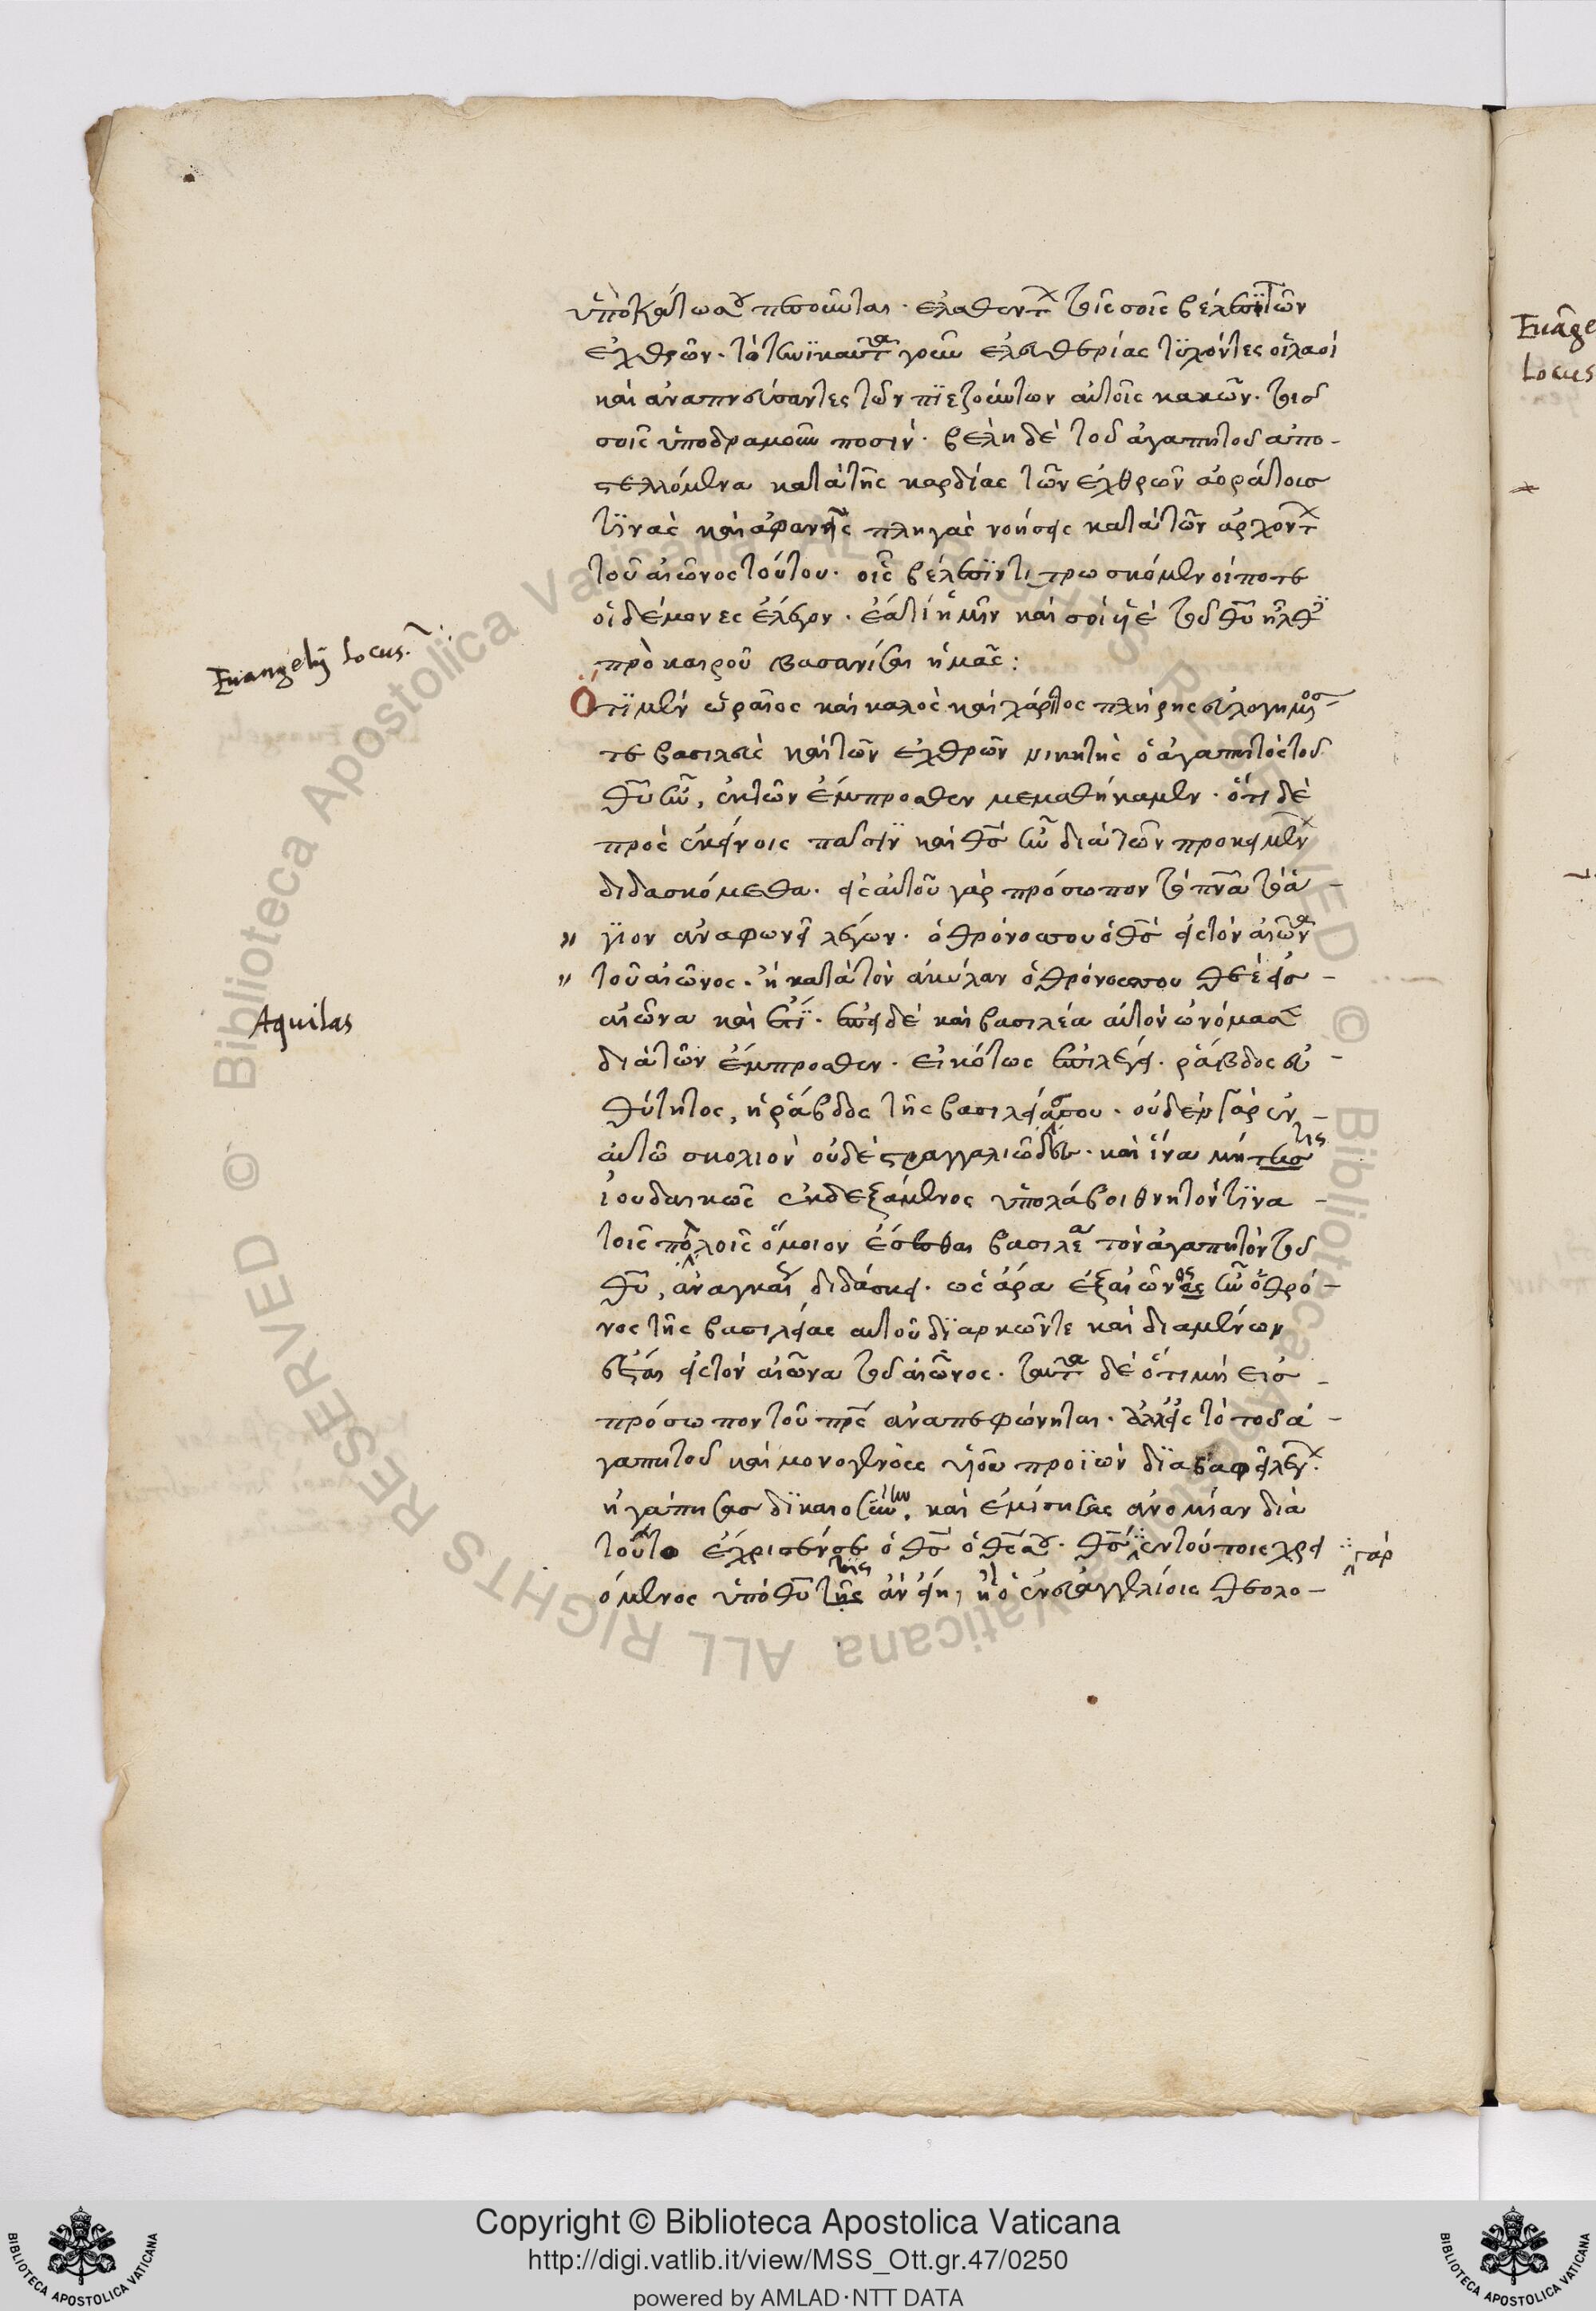 ὑποκάτω σου πεσοῦνται. ἐλαθέντων τοῖς σοῖς βέλεσι τῶν
ἐχθρῶν. τὸ τηνϊκαῦτα γοῦν ἐλευθερίας τϋχόντες οἱ λαοὶ
καὶ ἀναπνεύσαντες τῶν πϊεζούντων αὐτοῖς κακῶν. τοῖς
σοῖς ὑποδραμοῦν ποσιν. βέλη δὲ τοῦ ἀγαπητοῦ ἀπο-
στελλόμενα κατὰ τῆς καρδίας τῶν ἐχθρῶν ἀοράτοισ
τϊνὰς καὶ ἀφανεῖς πληγὰς νοήσεις κατὰ τῶν ἀρχόντων
τοῦ αἰῶνος τούτου. οἷς βέλεσϊν τιτρωσκόμενοί ποτε
οἱ δέμονες ἔλεγον. ἔα τί ἡμῖν καὶ σοὶ υἱὲ τοῦ θ̅υ̅ ἦλθες
πρὸ καιροῦ βασανίσαι ἡμᾶς:
Ὅτϊ μὲν ὡραῖος καὶ καλὸς καὶ χάριτος πλήρης εὐλογημένος
τε βασιλεὺς καὶ τῶν ἐχθρῶν νικητὴς ὁ ἀγαπητὸς τοῦ
θ̅υ̅ ἦν, ἐκ τῶν ἔμπροσθεν μεμαθήκαμεν. ὅτι δὲ
πρὸς ἐκείνοις πᾶσϊν καὶ θ̅ς̅ ἦν διὰ τῶν προκειμένων
διδασκόμεθα. εἰς αὐτοῦ γὰρ πρόσωπον τὸ πν̅α̅ τὸ ἅ-
" γϊον ἀναφωνεῖ λέγων. ὁ θρόνος σου ὁ θ̅ς̅ εἰς τὸν αἰῶνα
" τοῦ αἰῶνος. ἢ κατὰ τὸν ἀκύλαν ὁ θρόνος σου θεὲ εἰσ
αἰῶνα καὶ ἔτϊ. ἐπεὶ δὲ καὶ βασιλέα αὐτὸν ὠνόμασε
διὰ τῶν ἔμπροσθεν. εἰκότως ἐπιλέγει. ῥάβδος εὐ-
θύτητος, ἡ ῥάβδος τῆς βασιλείας σου. οὐδὲν γὰρ ἐν
αὐτῶ σκολιὸν οὐδὲ στραγγαλιῶδες. καὶ ἵνα μή τις
ἰουδαικῶς ἐκδεξάμενος ὑπολάβοι θνητόν τϊνα
τοῖς πολλοῖς ὅμοιον ἔσεσθαι βασιλέα τὸν ἀγαπητὸν τοῦ
θ̅υ̅, ἀναγκαίως διδάσκει. ὡς ἄρα ἐξ αἰῶνος ἦν ὁ θρό-
νος τῆς βασιλείας αὐτοῦ δϊαρκῶν τε καὶ διαμένων
εἰς τὸν αἰῶνα τοῦ αἰῶνος. ταῦτα δὲ ὅτι μὴ εἰσ
πρόσωπον τοῦ πρ̅ς̅ ἀναπεφώνηται. ἀλλ' εἰς τὸ τοῦ ἀ-
γαπητοῦ καὶ μονογενοῦς υἱοῦ προϊὼν δϊασαφεῖ λέγων.
ἠγάπησασ δϊκαιοσύνην, καὶ ἐμίσησας ἀνομίαν διὰ
τοῦτο ἔχρισέν σε ὁ θ̅ς̅ ὁ θ̅ς̅ σου. θ̅ς̅ γὰρ ἐν τούτοις χρι-
όμενος ὑπὸ θ̅υ̅ τίς ἂν εἴη, ἢ ὁ ἐν εὐαγγελίοις θεολο-
Euangelij Locus.
Aquilas
Euange
Locus
Copyright © Biblioteca Apostolica Vaticana
http://digi.vatlib.it/view/MSS_Ott.gr.47/0250
powered by AMLAD·NTT DATA
BIBLIOTECA APOSTOLICA VATICANA
BIBLIOTECA APOSTOLICA VATICANA
© Biblioteca Apostolica Vaticana ALL RIGHTS RESERVED © Biblioteca Apostolica Vaticana ALL RIGHTS RESERVED